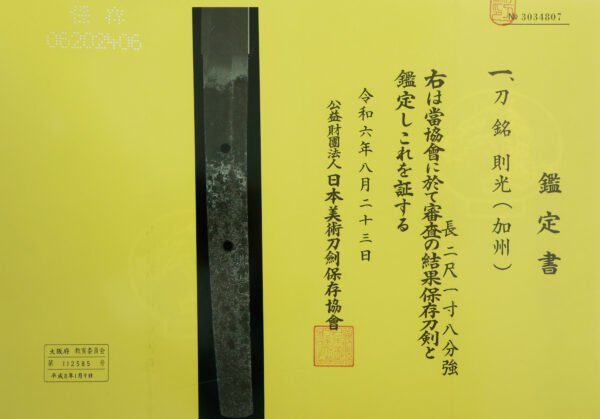 № 3034807
鑑定書
一、刀 銘 則光(加州)
長 二尺一寸八分強
右は當協會に於て審査の結果保存刀剣と
鑑定しこれを証する
令和六年八月二十三日
公益財團法人日本美術刀劍保存協會
保存
06202406
大阪府 教育委員会
第 112585 号
平成8年1月9日